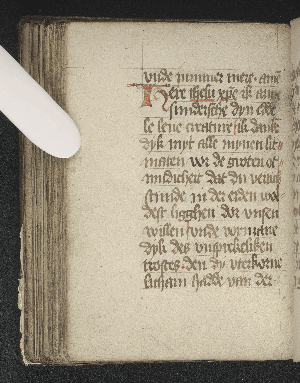 vnde nummer mere· ame
Here ihesu xpe ik arme
sundersche dyn edele
le leue creature ik danke
dyk myt alle mynen lit
maten vor de groten ot
mudicheit dat du vorsmade
stunde in der erden wol
dest ligghen dor vnsen
willen vnde vor mane
dyk des vnsprekeliken
trostes den dy vterkorne
licham hadde van der